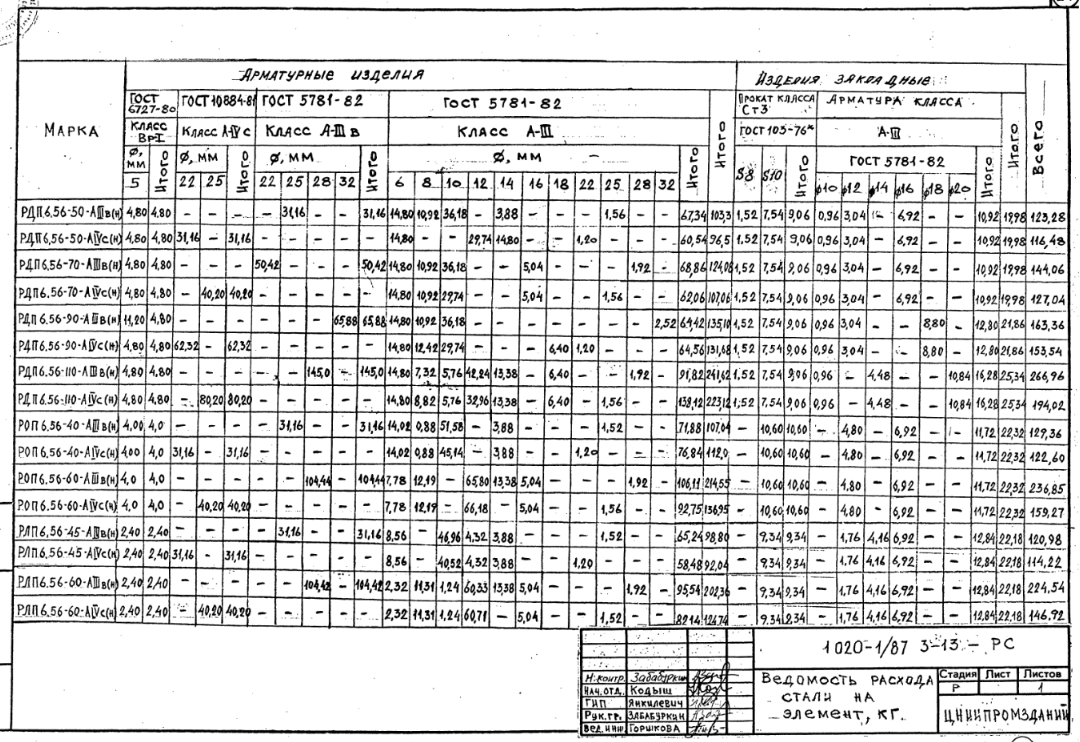 Арматурные изделия
Изделия закладные
Марка
ГОСТ 6727-80
ГОСТ 10884-81
ГОСТ 5781-82
ГОСТ 5781-82
Прокат класса Ст3
Арматура класса
Итого
Всего
Класс Вр-I
Класс А-IVс
Класс А-IIIв
Класс А-III
Итого
ГОСТ 103-76*
А-III
Ø, мм
Итого
Ø, мм
Итого
Ø, мм
Итого
Ø, мм
Итого
δ8 δ10 Итого
ГОСТ 5781-82
Итого
5 22 25 22 25 28 32 6 8 10 12 14 16 18 22 25 28 32 ø10 ø12 ø14 ø16 ø18 ø20
РДП6,56-50-АIIIв(н) 4,80 4,80 – – – – 31,16 – – 31,16 14,80 10,92 36,18 – 3,88 – – – 1,56 – – 67,34 103,3 1,52 7,54 9,06 0,96 3,04 – 6,92 – – 10,92 19,98 123,28
РДП6,56-50-АIVс(н) 4,80 4,80 31,16 – 31,16 – – – – – 14,80 – – 29,74 14,80 – – 1,20 – – – 60,54 96,5 1,52 7,54 9,06 0,96 3,04 – 6,92 – – 10,92 19,98 116,48
РДП6,56-70-АIIIв(н) 4,80 4,80 – – – 50,42 – – – 50,42 14,80 10,92 36,18 – – 5,04 – – – 1,92 – 68,86 124,08 1,52 7,54 9,06 0,96 3,04 – 6,92 – – 10,92 19,98 144,06
РДП6,56-70-АIVс(н) 4,80 4,80 – 40,20 40,20 – – – – – 14,80 10,92 29,74 – – 5,04 – – 1,56 – – 62,06 107,06 1,52 7,54 9,06 0,96 3,04 – 6,92 – – 10,92 19,98 127,04
РДП6,56-90-АIIIв(н) 11,20 4,80 – – – – – – 65,88 65,88 14,80 10,92 36,18 – – – – – – – 2,52 64,42 135,10 1,52 7,54 9,06 0,96 3,04 – – 8,80 – 12,80 21,86 163,36
РДП6,56-90-АIVс(н) 4,80 4,80 62,32 – 62,32 – – – – – 14,80 12,42 29,74 – – – 6,40 1,20 – – – 64,56 131,68 1,52 7,54 9,06 0,96 3,04 – – 8,80 – 12,80 21,86 153,54
РДП6,56-110-АIIIв(н) 4,80 4,80 – – – – – 145,0 – 145,0 14,80 7,32 5,76 42,24 13,38 – 6,40 – – 1,92 – 91,82 241,62 1,52 7,54 9,06 0,96 – 4,48 – – 10,84 16,28 25,34 266,96
РДП6,56-110-АIVс(н) 4,80 4,80 – 80,20 80,20 – – – – – 14,80 8,82 5,76 32,96 13,38 – 6,40 – 1,56 – – 138,12 223,12 1,52 7,54 9,06 0,96 – 4,48 – – 10,84 16,28 25,34 194,02
РОП6,56-40-АIIIв(н) 4,00 4,0 – – – – 31,16 – – 31,16 14,02 0,88 51,58 – 3,88 – – – 1,52 – – 71,88 107,04 – 10,60 10,60 – 4,80 – 6,92 – – 11,72 22,32 129,36
РОП6,56-40-АIVс(н) 4,00 4,0 31,16 – 31,16 – – – – – 14,02 0,88 45,14 – 3,88 – – 1,20 – – – 76,84 112,0 – 10,60 10,60 – 4,80 – 6,92 – – 11,72 22,32 122,60
РОП6,56-60-АIIIв(н) 4,0 4,0 – – – – – 104,44 – 104,44 7,78 12,19 – 65,80 13,38 5,04 – – – 1,92 – 106,11 214,55 – 10,60 10,60 – 4,80 – 6,92 – – 11,72 22,32 236,85
РОП6,56-60-АIVс(н) 4,0 4,0 – 40,20 40,20 – – – – – 7,78 12,19 – 66,18 – 5,04 – – 1,56 – – 92,75 136,95 – 10,60 10,60 – 4,80 – 6,92 – – 11,72 22,32 159,27
РЛП6,56-45-АIIIв(н) 2,40 2,40 – – – – 31,16 – – 31,16 8,56 – 46,96 4,32 3,88 – – – 1,52 – – 65,24 98,80 – 9,34 9,34 – 1,76 4,16 6,92 – – 12,84 22,18 120,98
РЛП6,56-45-АIVс(н) 2,40 2,40 31,16 – 31,16 – – – – – 8,56 – 40,52 4,32 3,88 – – 1,20 – – – 58,48 92,04 – 9,34 9,34 – 1,76 4,16 6,92 – – 12,84 22,18 114,22
РЛП6,56-60-АIIIв(н) 2,40 2,40 – – – – – 104,42 – 104,42 2,32 11,31 1,24 60,33 13,38 5,04 – – – 1,92 – 95,54 202,36 – 9,34 9,34 – 1,76 4,16 6,92 – – 12,84 22,18 224,54
РЛП6,56-60-АIVс(н) 2,40 2,40 – 40,20 40,20 – – – – – 2,32 11,31 1,24 60,71 – 5,04 – – 1,52 – – 82,14 124,74 – 9,34 9,34 – 1,76 4,16 6,92 – – 12,84 22,18 146,92
1020-1/87 3-13 – РС
Н.контр. Забабуркин
Нач.отд. Кодыш
ГИП Янкилевич
Рук.гр. Забабуркин
Вед.инж. Горшкова
Ведомость расхода
стали на
элемент, кг.
Стадия Лист Листов
Р 1
ЦНИИПРОМЗДАНИЙ